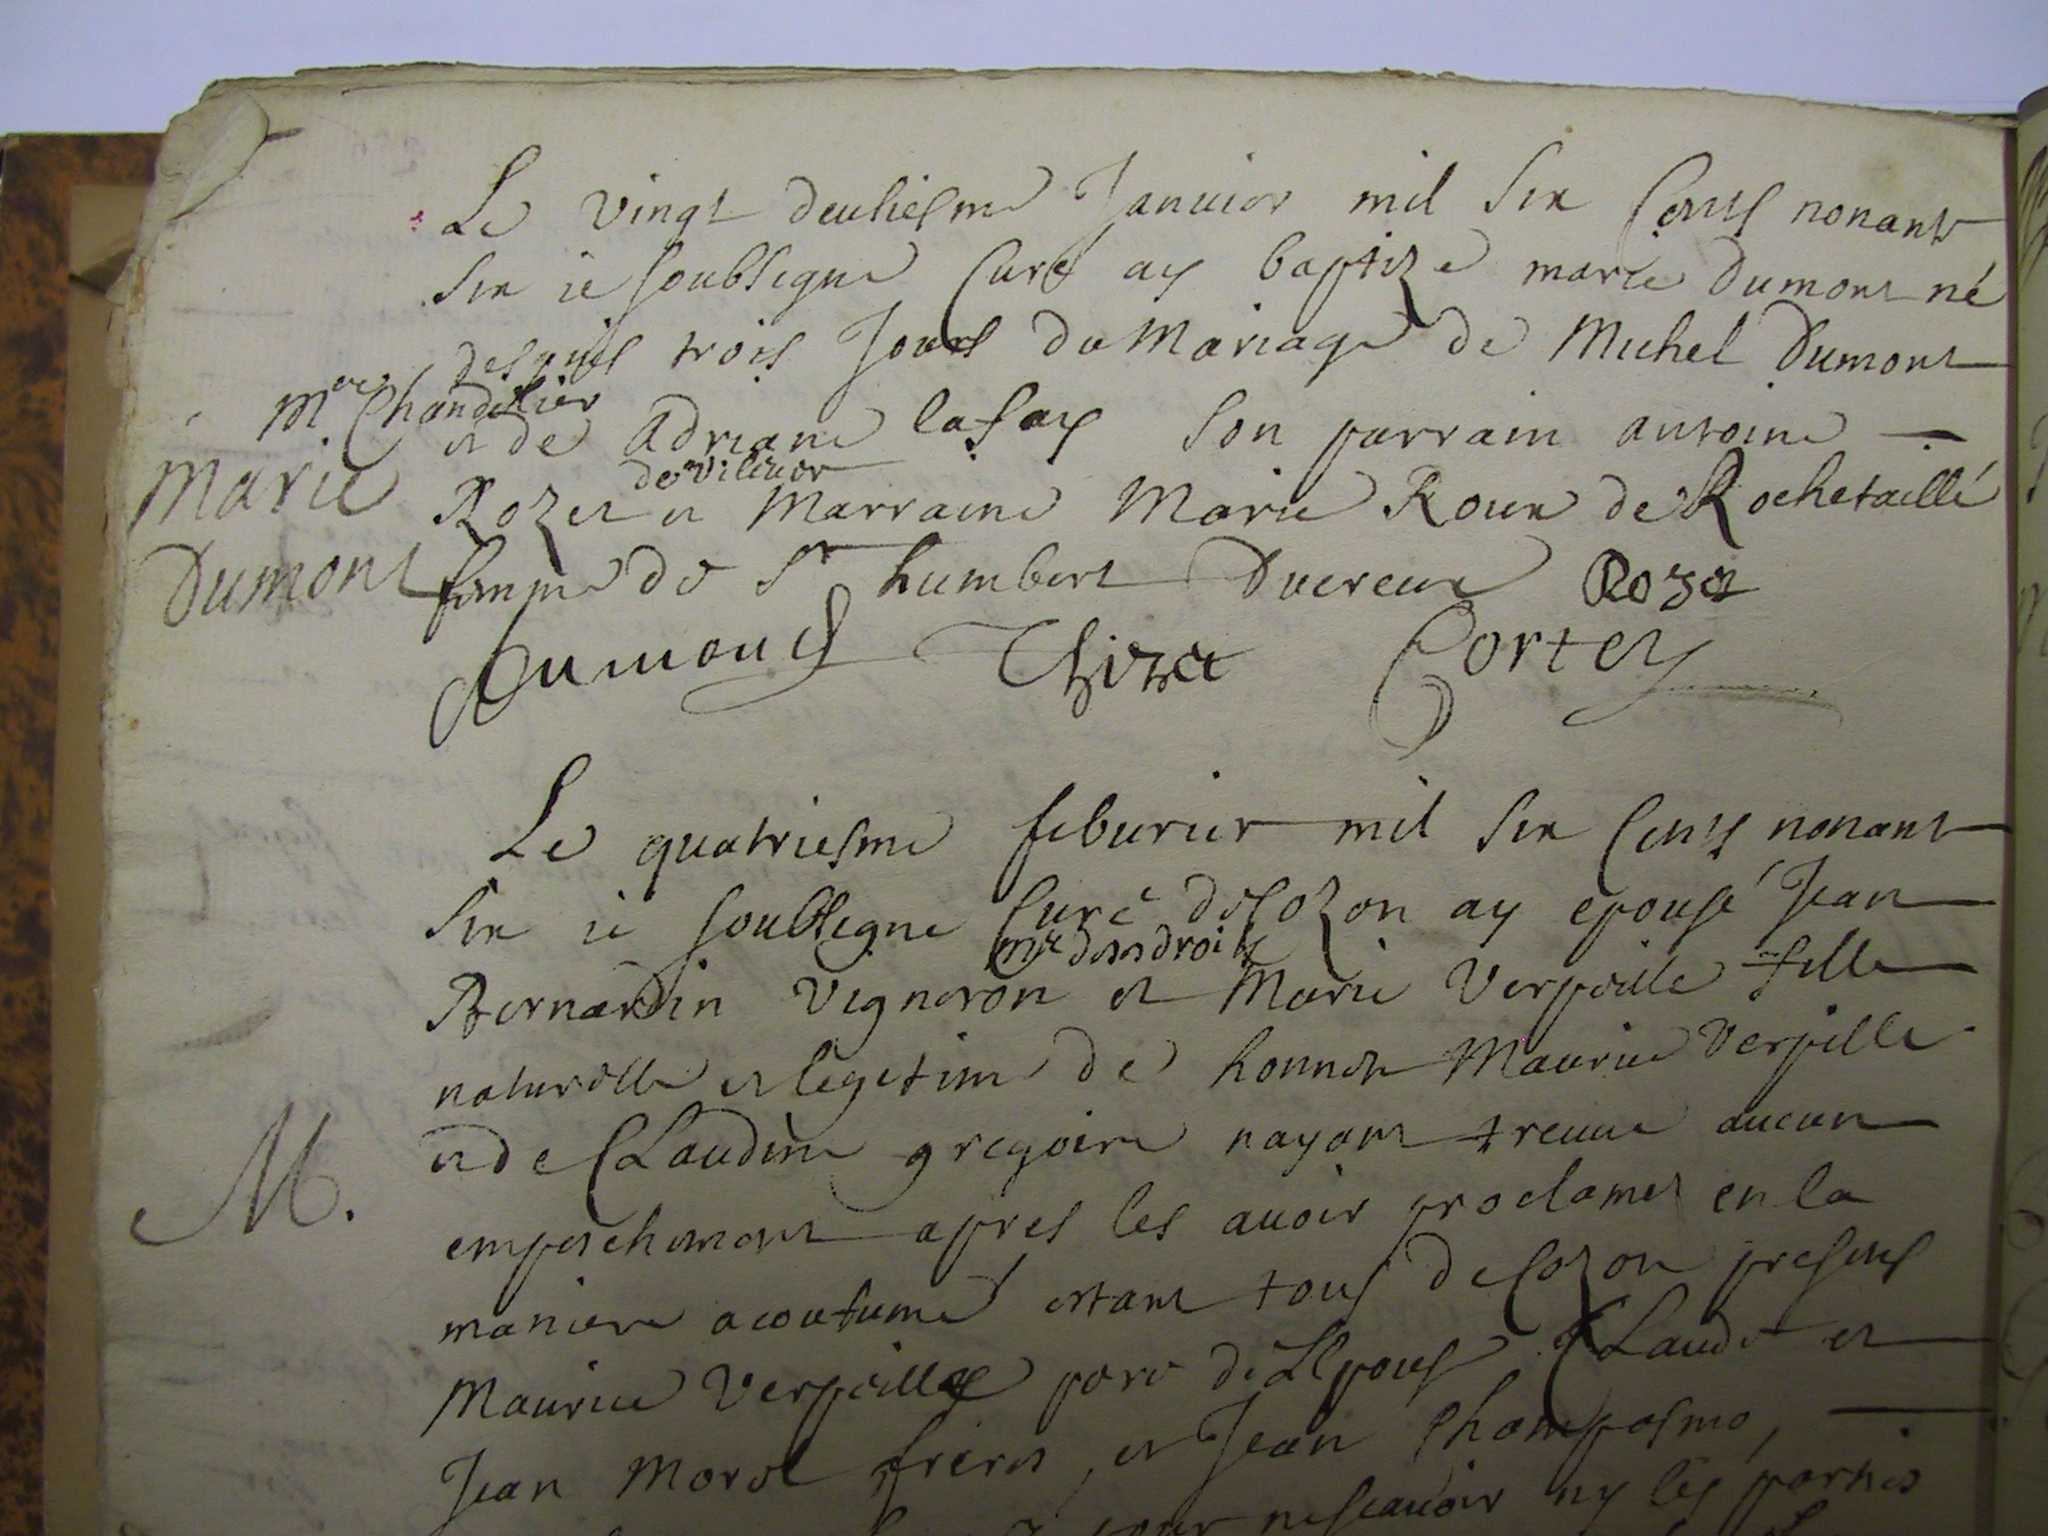 Le vingt deuhiesme Januier mil six Cents nonant
six ie soubsigne Curé ay baptize marie Dumont né
despuis trois Jours du Mariage de Michel Dumont
Mre Chandelier
et de Adriane lafay son parrain antoine
de Vilever
Marie
Rozet et Marraine Marie Roux de Rochetaillé
Dumont
femme de Sr humbert Ducreux Rozet
Dumond Thizet Cortey
Le quatriesme feburier mil six Cents nonant
six ie soubsigne Curé de Cozon ay epousé Jean
mre dendroit
Bernardin Vigneron et Marie Verpeille fille
naturelle et legetime de honneste Maurice Verpille
et de CLaudine gregoire nayant treuue aucun
M.
empeschement apres les auoir proclamez en la
maniere acoutume estant tous de Cozon presents
Maurice Verpeille pere de Lepouse CLaude et
Jean Morel freres, et Jean Champasmo,
nescauoir ny les parties